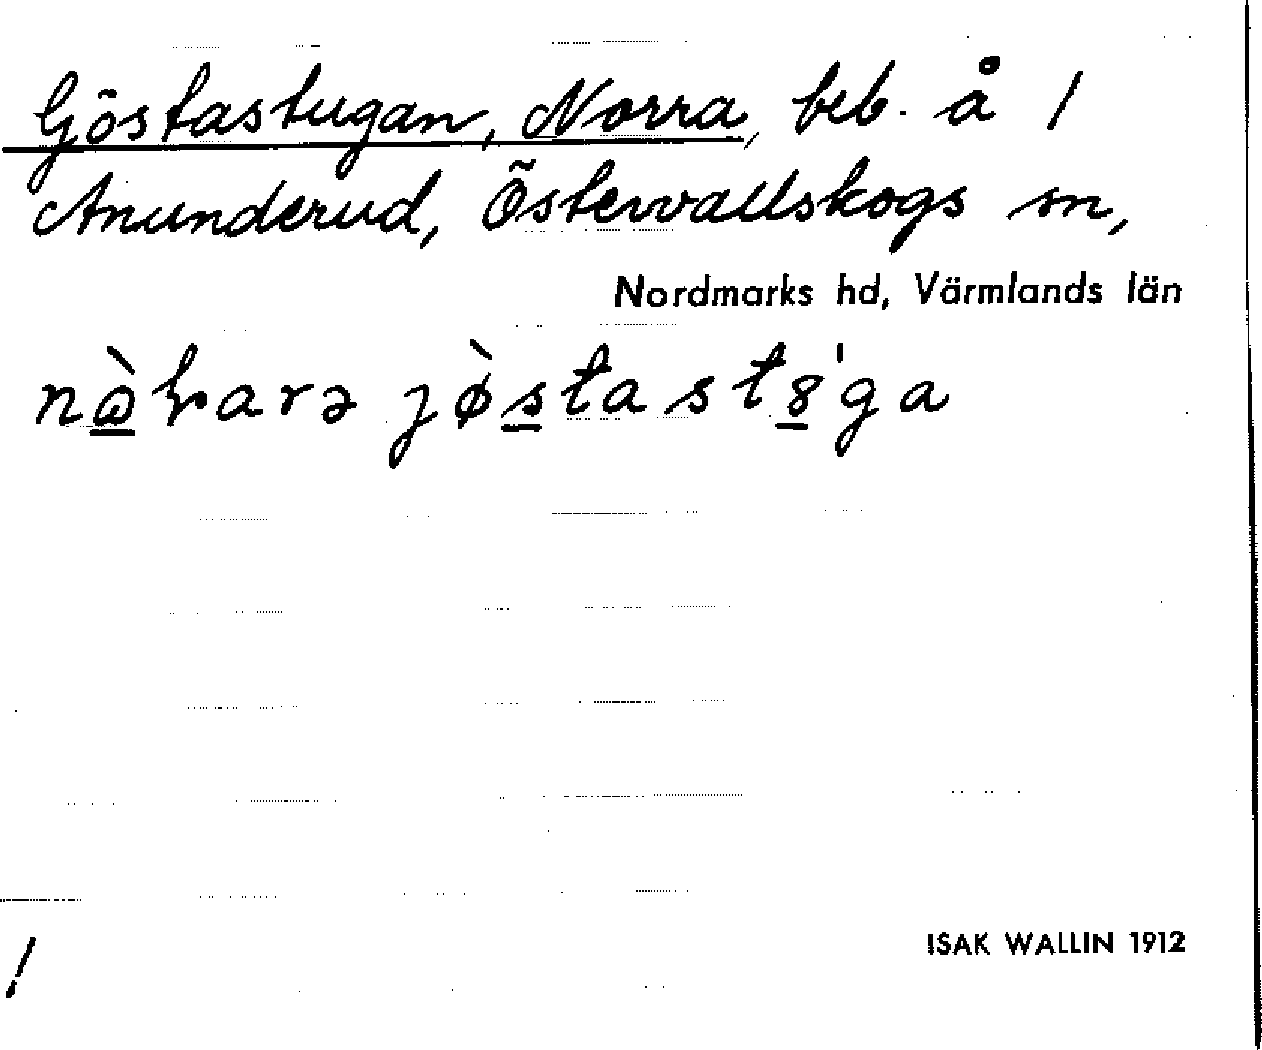 Göstastugan, Norra, beb. å 1
Anunderud, Östervallskogs sn,
Nordmarks hd, Värmlands län
jø̀stastȣ'ga
ISAK WALLIN 1912
!